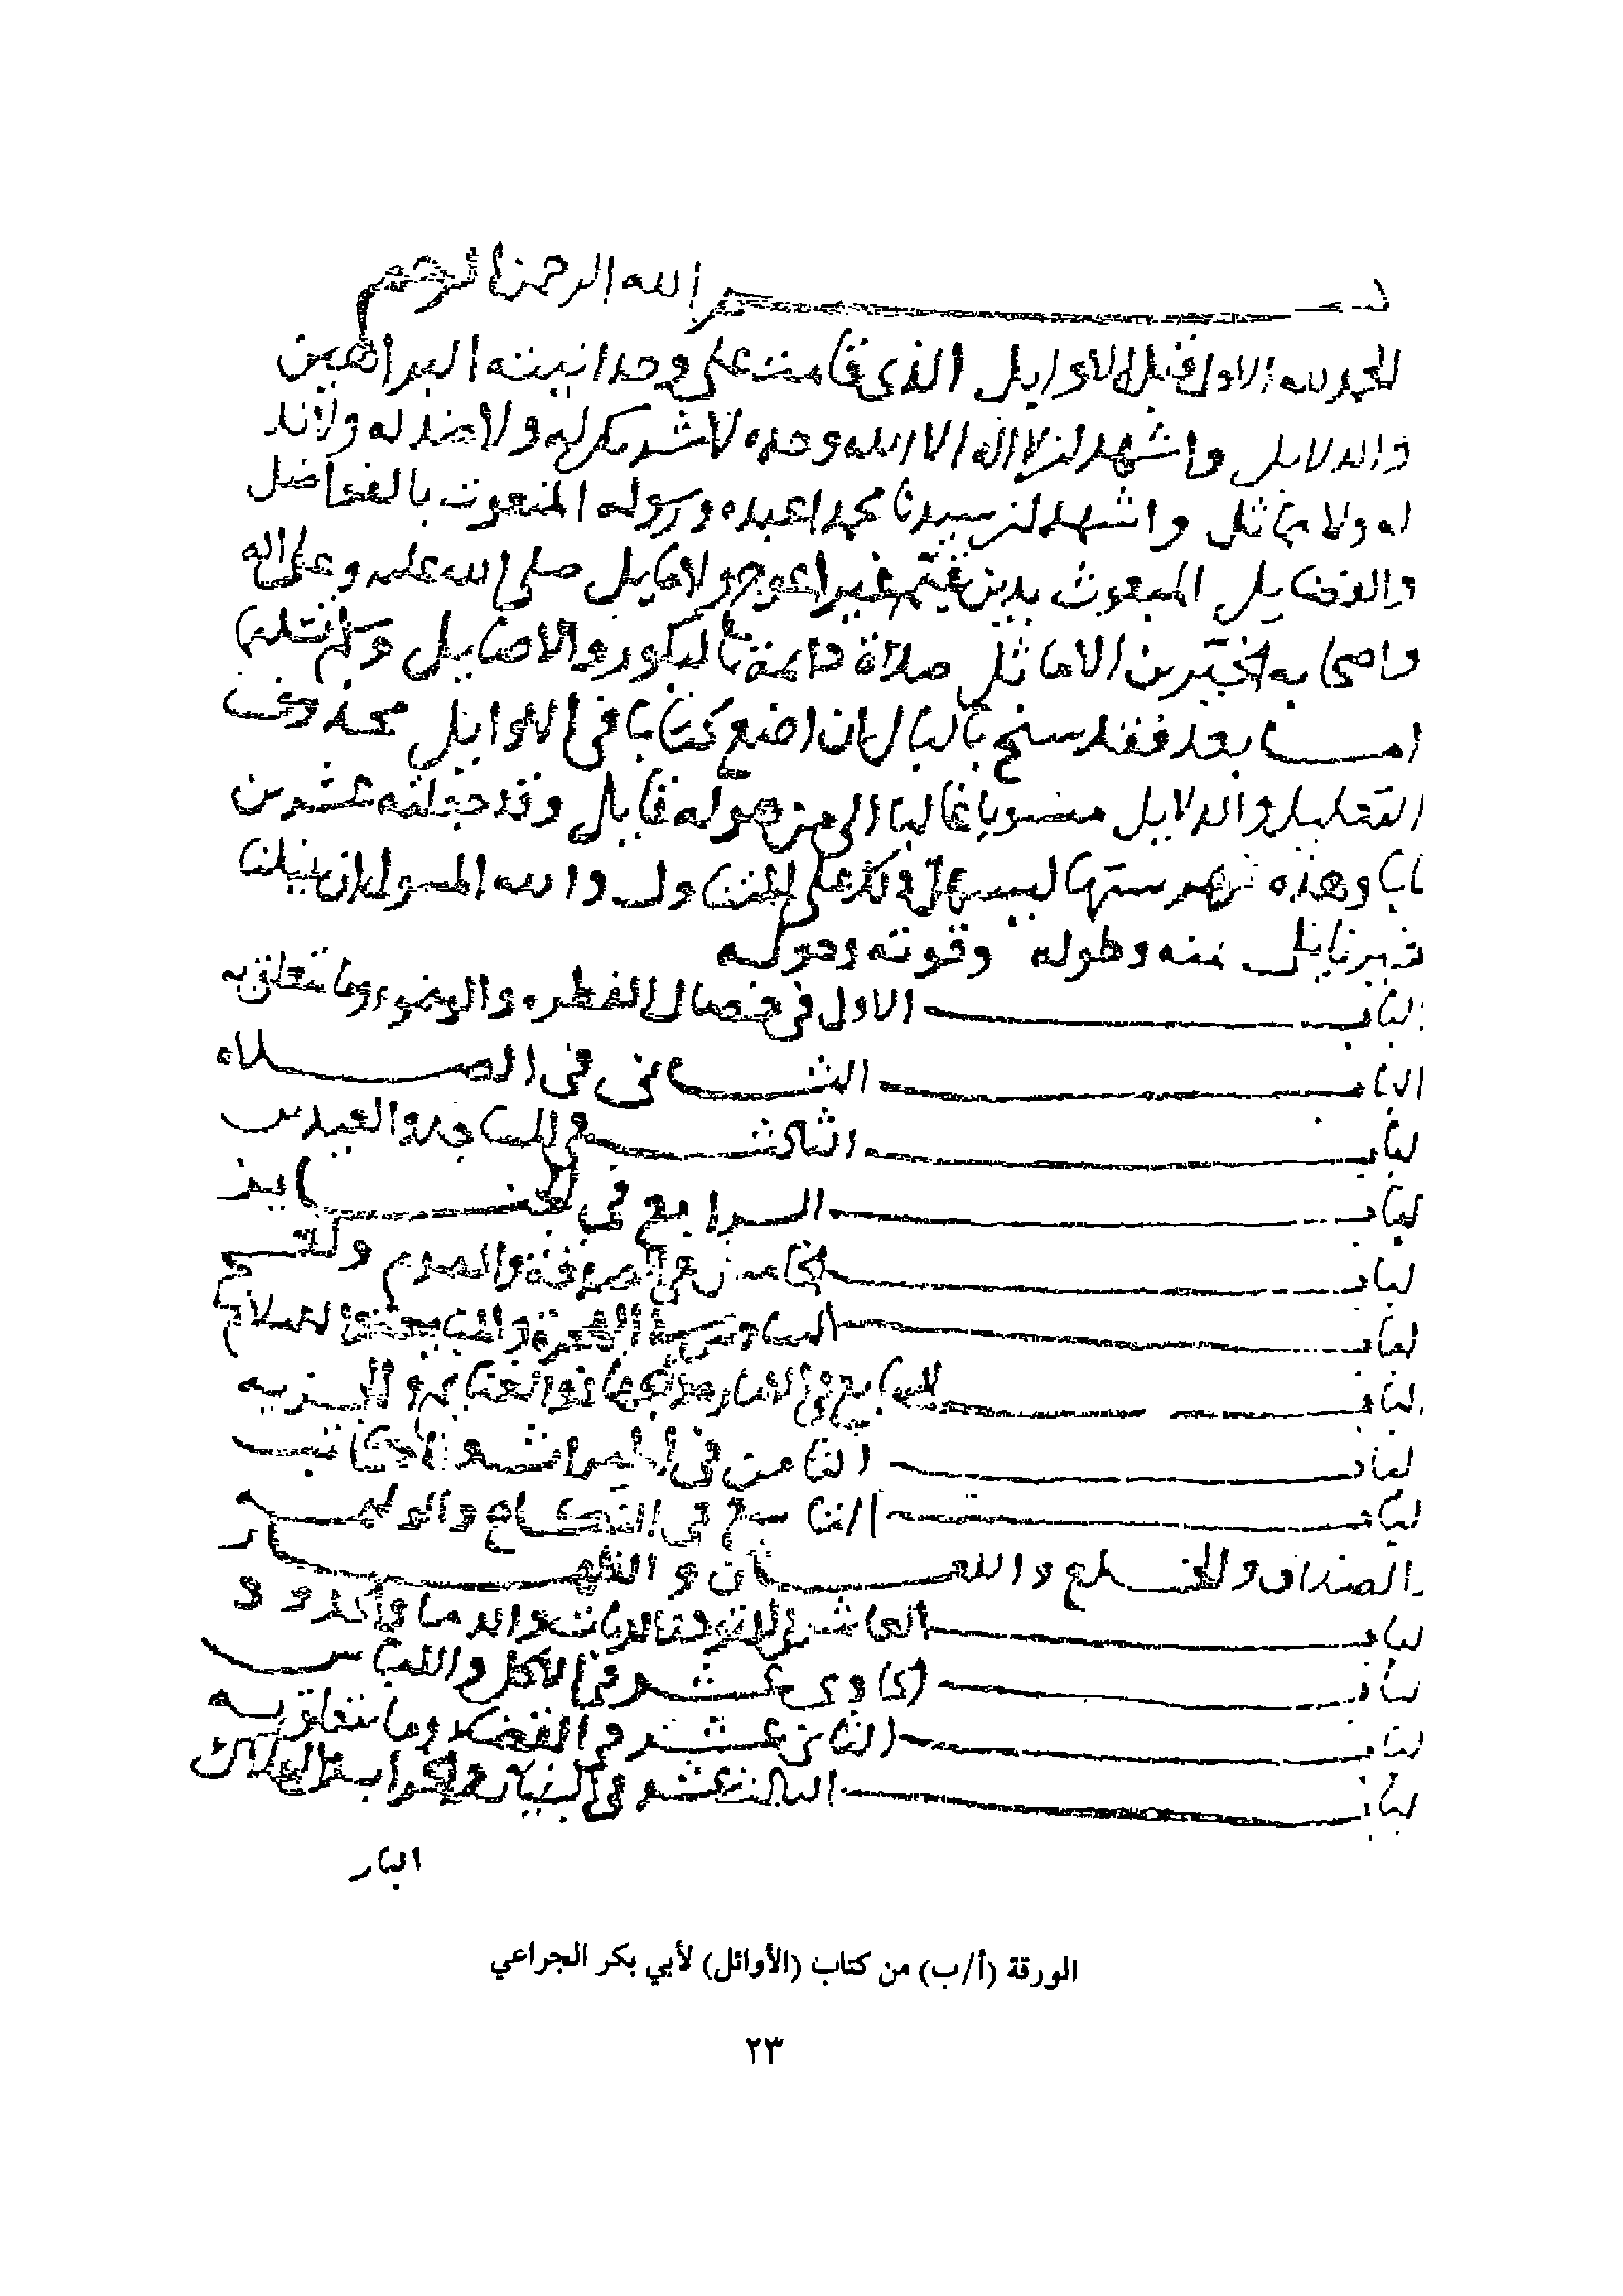 بسم الله الرحمن الرحيم
الحمد لله الاول قبل الاوايل الذى قامت على وحدانيته البراهين
والدلايل واشهد ان لا اله الا الله وحده لا شريك له ولا ضد له ولا ند
له ولا مماثل واشهد ان سيدنا محمدا عبده ورسوله المنعوت بالفواضل
والفضايل المبعوث بدين قيم غير اعوج ولا مايل صلى الله عليه وعلى اله
واصحابه الخيرين الاماثل صلاة دائمة بالبكور والاصايل وسلم تسليما
امـــا بعد فقد سنح بالبال ان اضع كتابا فى الاوايل محذوف
التعليل والدلايل منسوبا غالبا الى من هو له قايل وقد جعلته عشرين
بابا وهذه فهرستها ليسهل ذلك على المتناول والله المسول ان ينيلنا
منه وطوله وقوته وحوله
الباب الاول فى خصال الفطره والوضوء وما يتعلق به
الباب الثانى فى الصلاه
الباب الثالث فى المساجد والعيدين
الباب الرابع فى الجنايز
الباب الخامس فى الصدقة والصوم والحج
الباب السادس
الباب السابع فى الامارة والجهاد والغنايم والجزيه
الباب الثامن فى الميراث والمكاتب
الباب التاسع فى النكاح والوليمه
الصداق والخلع واللعان والظهار
الباب العاشر والديات والدما والحدود
الباب الحادى عشر فى الاكل واللباس
الباب الثانى عشر فى القضا وما يتعلق به
الباب الثالث عشر فى البنيان
الباب
الورقة (أ/ب) من كتاب (الأوائل) لأبي بكر الجراعي
٢٣